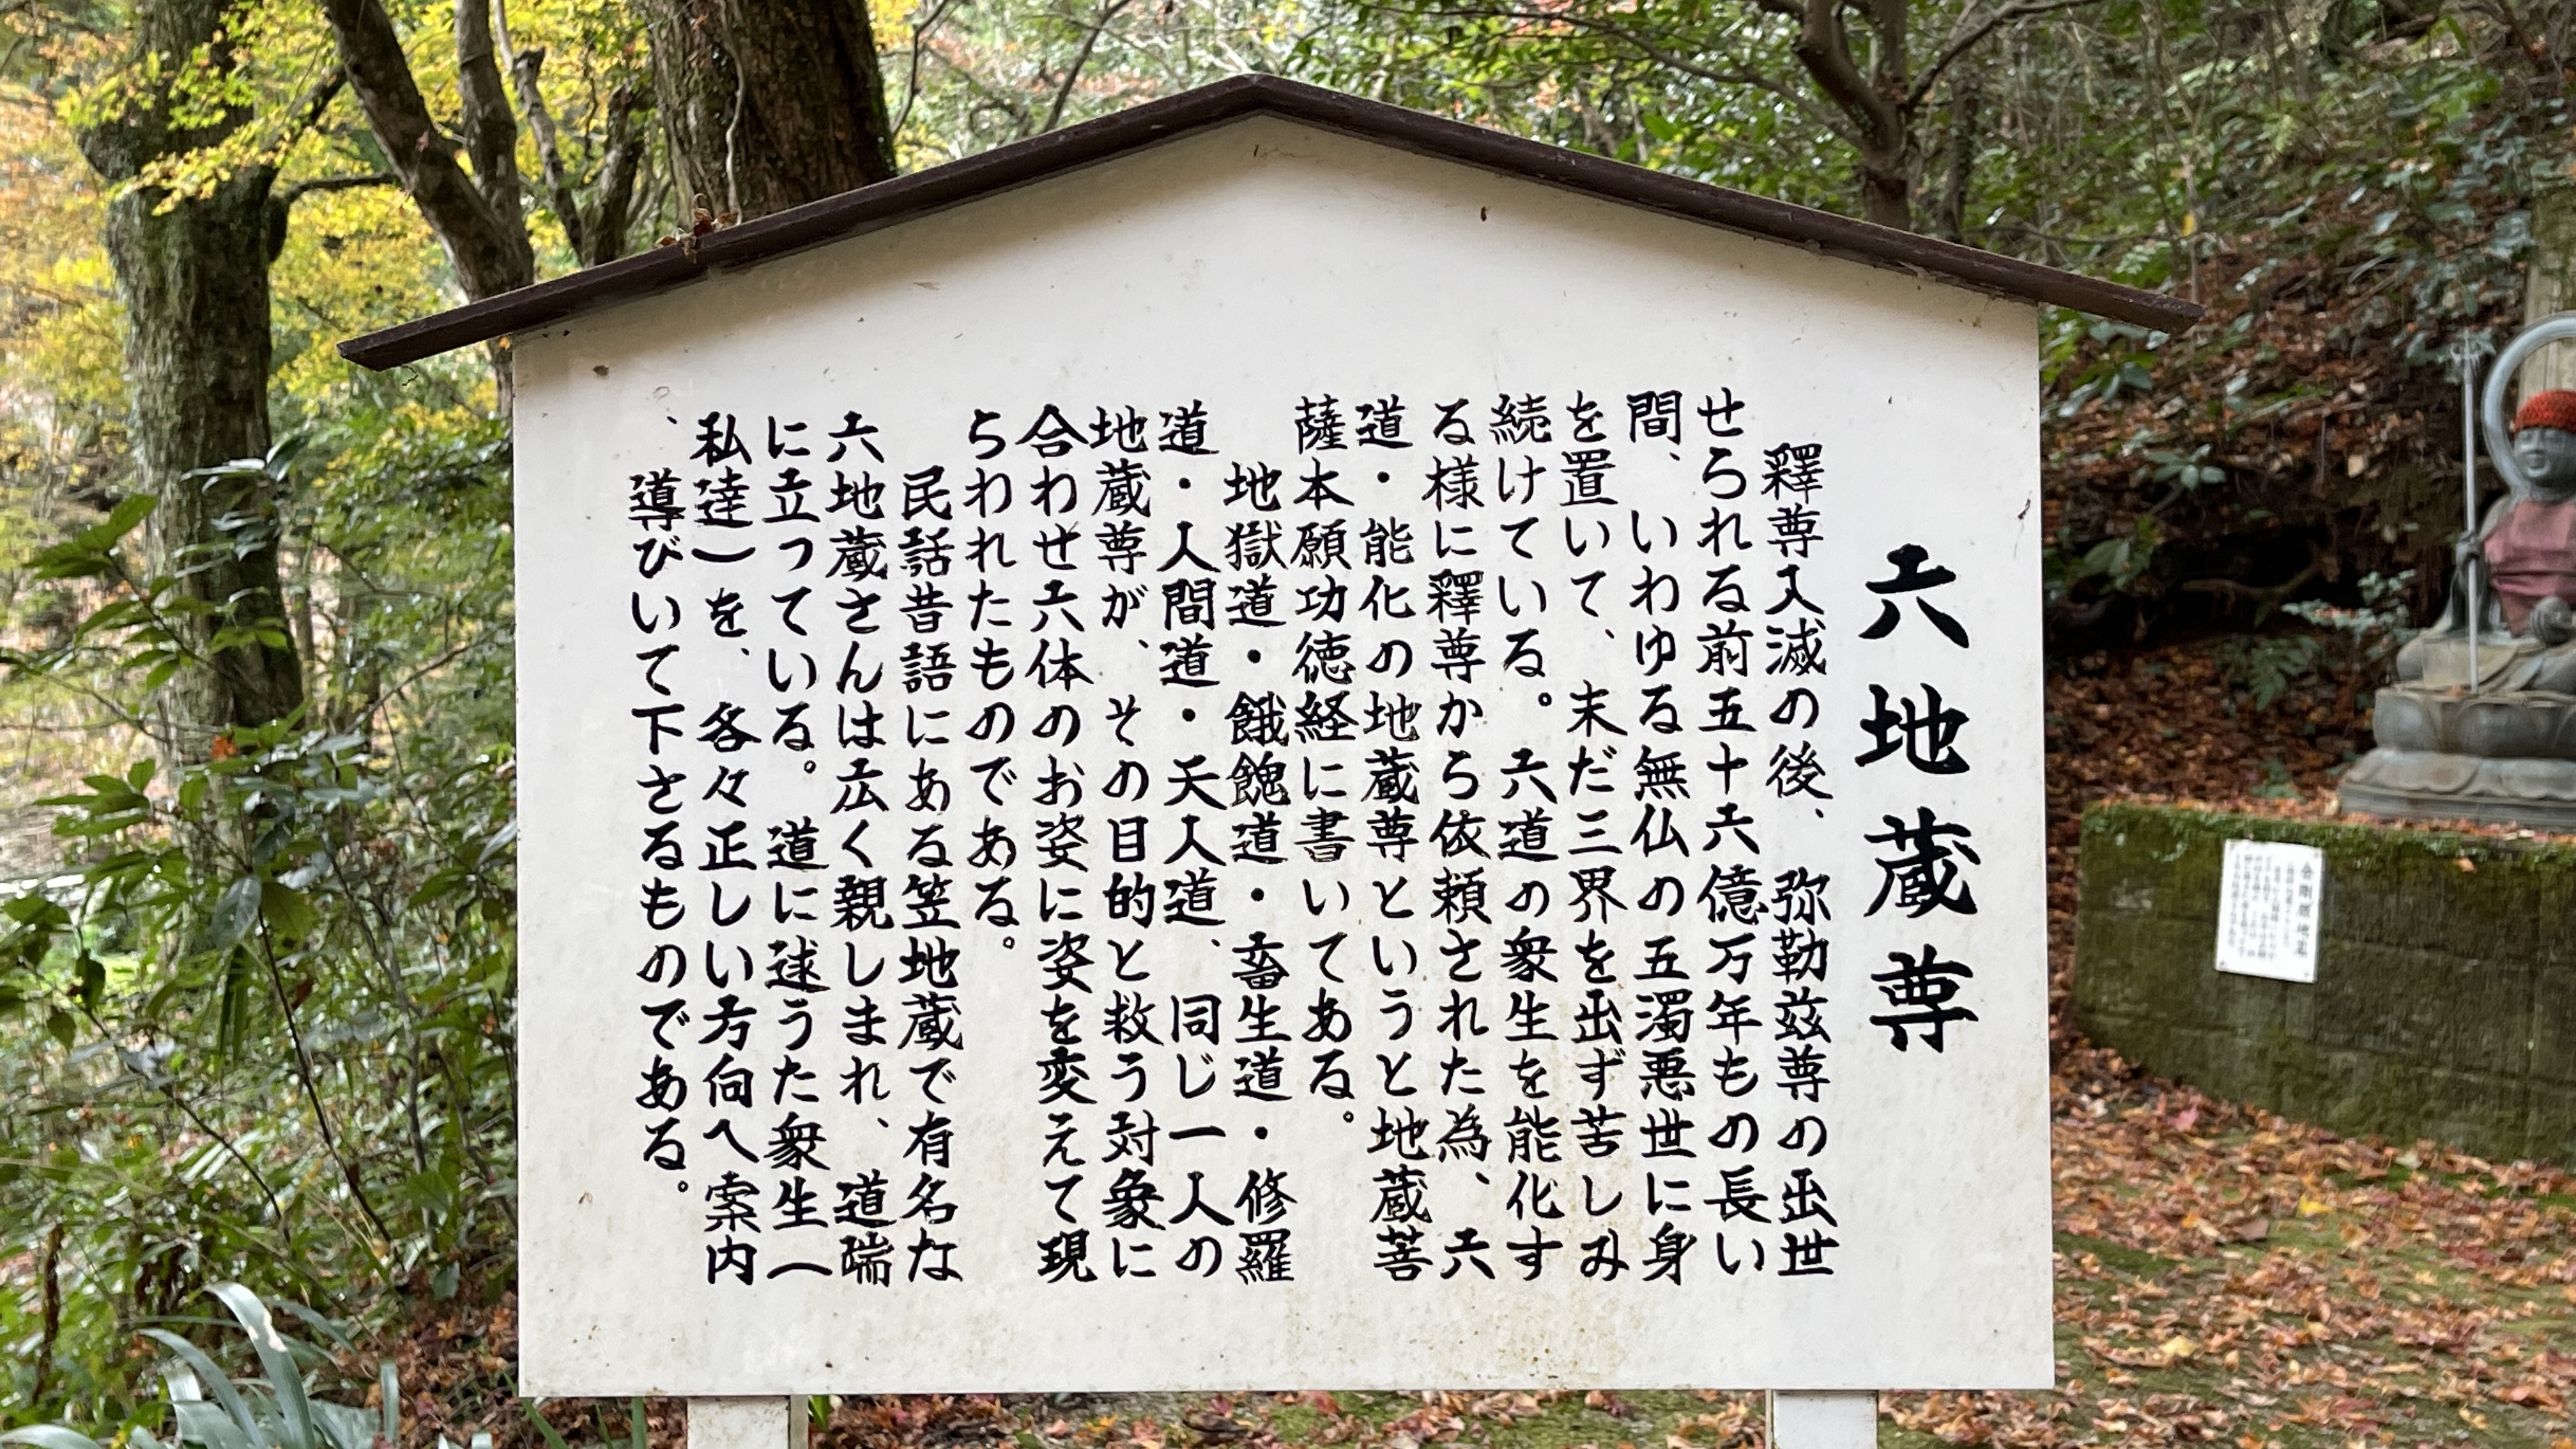 六地蔵尊
釋尊入滅の後、弥勒茲尊の出世
せられる前五十六億万年もの長い
間、いわゆる無仏の五濁悪世に身
を置いて、末だ三界を出ず苦しみ
続けている。六道の衆生を能化す
る様に釋尊から依頼された為、六
道・能化の地蔵尊というと地蔵菩
薩本願功徳経に書いてある。
地獄道・餓餽道・畜生道・修羅
道・人間道・天人道、同じ一人の
地蔵尊が、その目的と救う対象に
合わせ六体のお姿に姿を変えて現
らわれたものである。
民話昔語にある笠地蔵で有名な
六地蔵さんは広く親しまれ、道端
に立っている。道に逑うた衆生（
私達）を、各々正しい方向へ案内
、導びいて下さるものである。